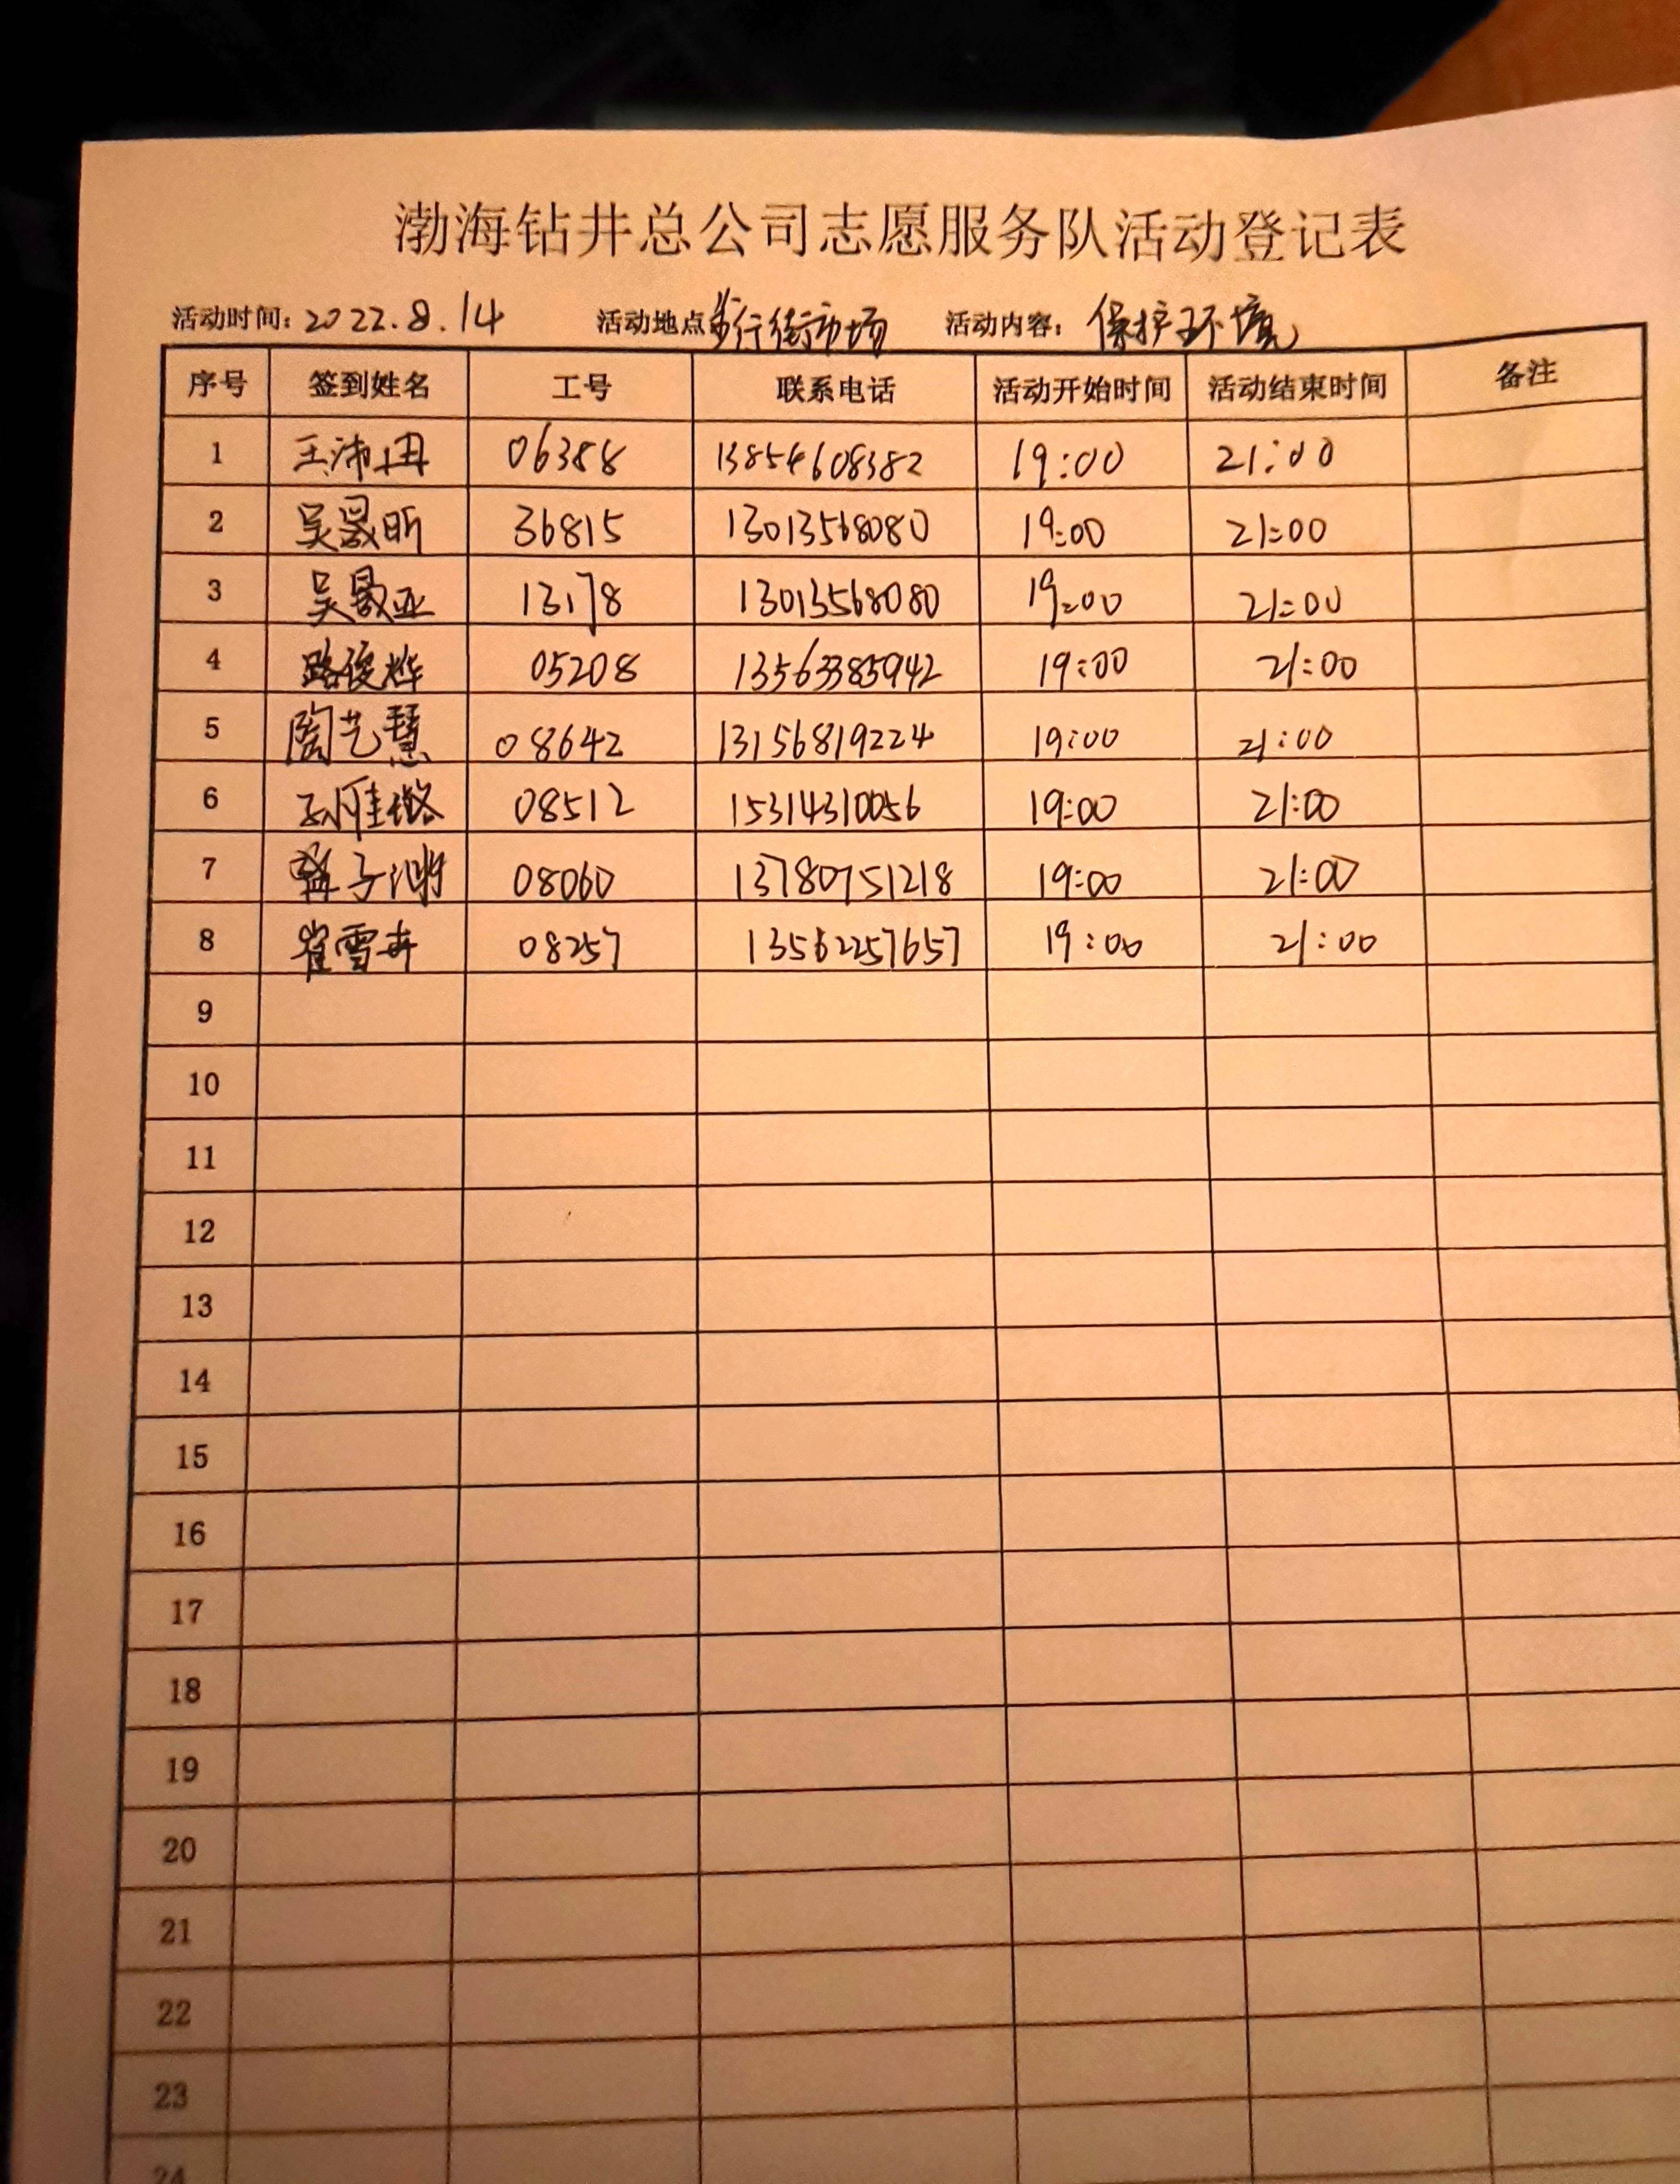 渤海钻井总公司志愿服务队活动登记表
活动时间：2022.8.14 活动地点 步行街市场 活动内容：保护环境
序号 签到姓名 工号 联系电话 活动开始时间 活动结束时间 备注
1 王沛冉 06388 13854608382 19:00 21:00
2 吴晟昕 36815 13013568080 19:00 21:00
3 吴晟亚 13178 13013568080 19:00 21:00
4 路俊烨 05208 13563385942 19:00 21:00
5 陶艺慧 08642 13156819224 19:00 21:00
6 08512 15314310056 19:00 21:00
7 08060 13780751218 19:00 21:00
8 崔雪卉 08257 13562257657 19:00 21:00
9
10
11
12
13
14
15
16
17
18
19
20
21
22
23
24